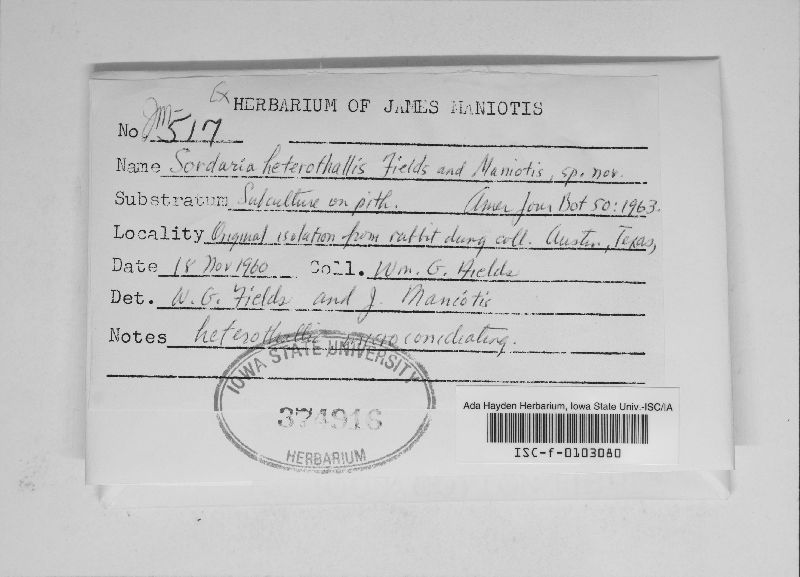 Ex HERBARIUM OF JAMES MANIOTIS
No JM-517
Name Sordaria heterothallis Fields and Maniotis, sp. nov.
Substratum Subculture on pith. Amer Jour Bot 50:1963.
Locality Original isolation from rabbit dung coll. Austin, Texas,
Date 18 Nov 1960 Coll. Wm. G. Fields
Det. W. G. Fields and J. Maniotis
Notes heterothallic, microconidiating.
IOWA STATE UNIVERSITY
374916
HERBARIUM
Ada Hayden Herbarium, Iowa State Univ.-ISC/IA
ISC-f-0103080